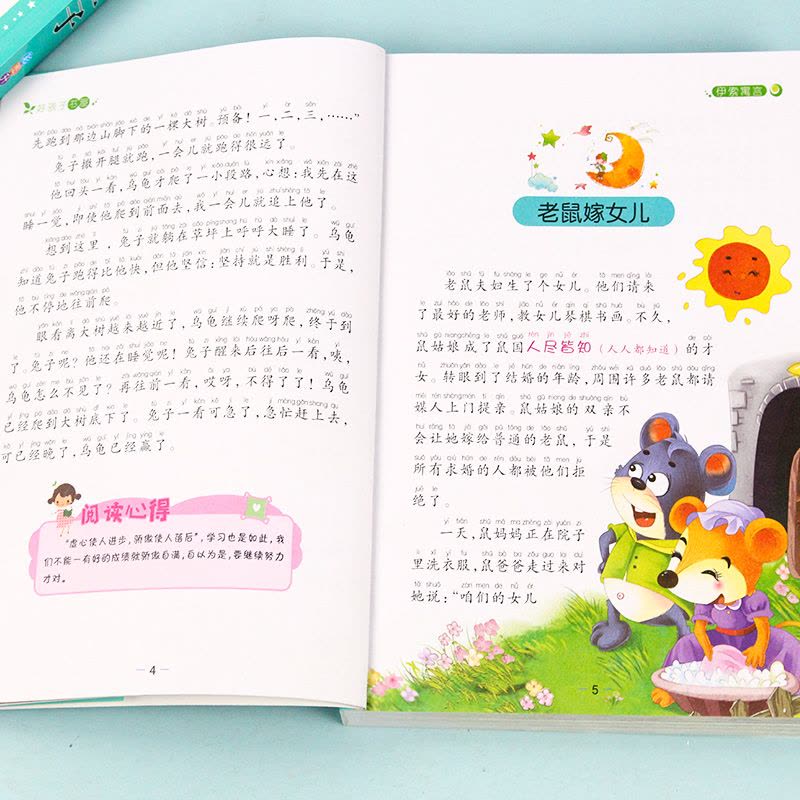 好孩子书屋
先跑到那边山脚下的一棵大树。预备！一，二，三，……”
兔子撒开腿就跑，一会儿就跑得很远了。
他回头一看，乌龟才爬了一小段路，心想：我先在这
睡一觉，即使他爬到前面去，我一会儿就追上他了。
想到这里，兔子就躺在草坪上呼呼大睡了。乌龟
知道兔子跑得比他快，但他坚信：坚持就是胜利。于是，
他不停地往前爬。
眼看离大树越来越近了，乌龟继续爬呀爬，终于到
了。兔子呢？他还在睡觉呢！兔子醒来后往后一看，咦，
乌龟怎么不见了？再往前一看，哎呀，不得了了！乌龟
已经爬到大树底下了。兔子一看可急了，急忙赶上去，
可已经晚了，乌龟已经赢了。
阅读心得
“虚心使人进步，骄傲使人落后”，学习也是如此，我
们不能一有好的成绩就骄傲自满，自以为是，要继续努力
才对。
4
伊索寓言
老鼠嫁女儿
老鼠夫妇生了个女儿。他们请来
了最好的老师，教女儿琴棋书画。不久，
鼠姑娘成了鼠国人尽皆知（人人都知道）的才
女。转眼到了结婚的年龄，周围许多老鼠都请
媒人上门提亲。鼠姑娘的双亲不
会让她嫁给普通的老鼠，于是
所有求婚的人都被他们拒
绝了。
一天，鼠妈妈正在院子
里洗衣服，鼠爸爸走过来对
她说：“咱们的女儿
5